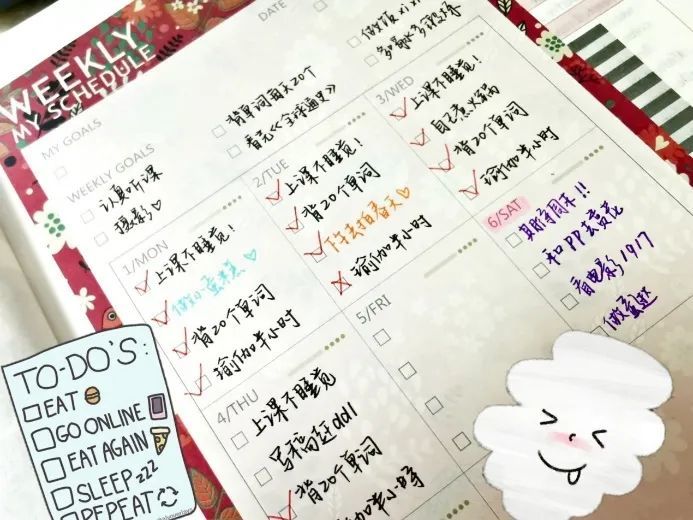 WEEKLY
MY SCHEDULE
DATE
做饭 xi xi
MY GOALS
背单词每天20个
看完《全球通史》
WEEKLY GOALS
认真听课
摄影♡
1/MON
上课不睡觉!
做小蛋糕♡
背20个单词
瑜伽半小时
2/TUE
上课不睡觉!
背20个单词
下午去拍春天♡
瑜伽半小时
3/WED
上课不睡觉!
自己煮火锅
背20个单词
瑜伽半小时
4/THU
上课不睡觉
写稿赶ddl
背20个单词
瑜伽半小时
5/FRI
6/SAT
期待周末!!
和PP去赏花
看电影1917
做蛋挞
TO-DO'S:
EAT
GO ONLINE
EAT AGAIN
SLEEP zzz
REPEAT